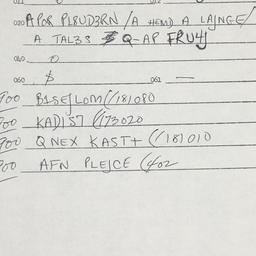 020 APOR PL8UD3RN /A HEMD A LAJNGE/
A TAL33 $ Q-AP FRU4J
040 0
050 $ 051 —
700 B1SEJLOM(/181080
700 KADIS7 (/173020
900 QNEX KAST+ (/181010
900 AFN PLEJCE (402